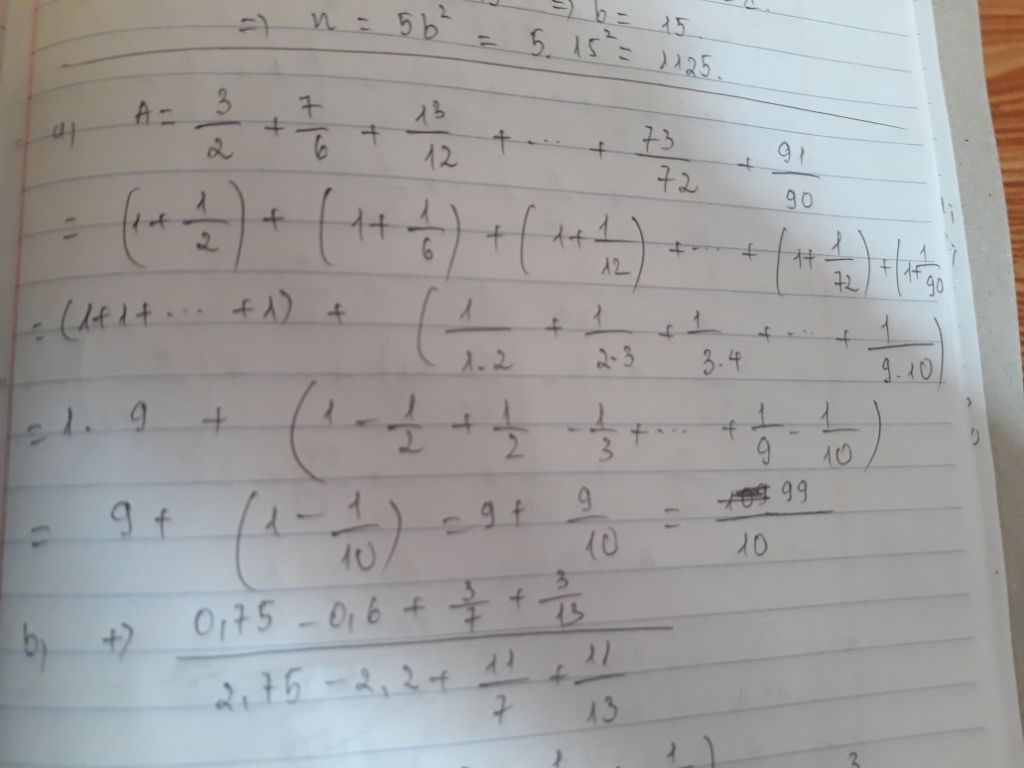 => b = 15
=> n = 5b² = 5. 15² = 1125.
a) A = 3/2 + 7/6 + 13/12 + ... + 73/72 + 91/90
= (1 + 1/2) + (1 + 1/6) + (1 + 1/12) + ... + (1 + 1/72) + (1 + 1/90
= (1+1+ ... +1) + (1/1.2 + 1/2.3 + 1/3.4 + ... + 1/9.10)
= 1. 9 + (1 - 1/2 + 1/2 - 1/3 + ... + 1/9 - 1/10)
= 9 + (1 - 1/10) = 9 + 9/10 = 99/10
b) +) (0,75 - 0,6 + 3/7 + 3/13)/(2,75 - 2,2 + 11/7 + 11/13)